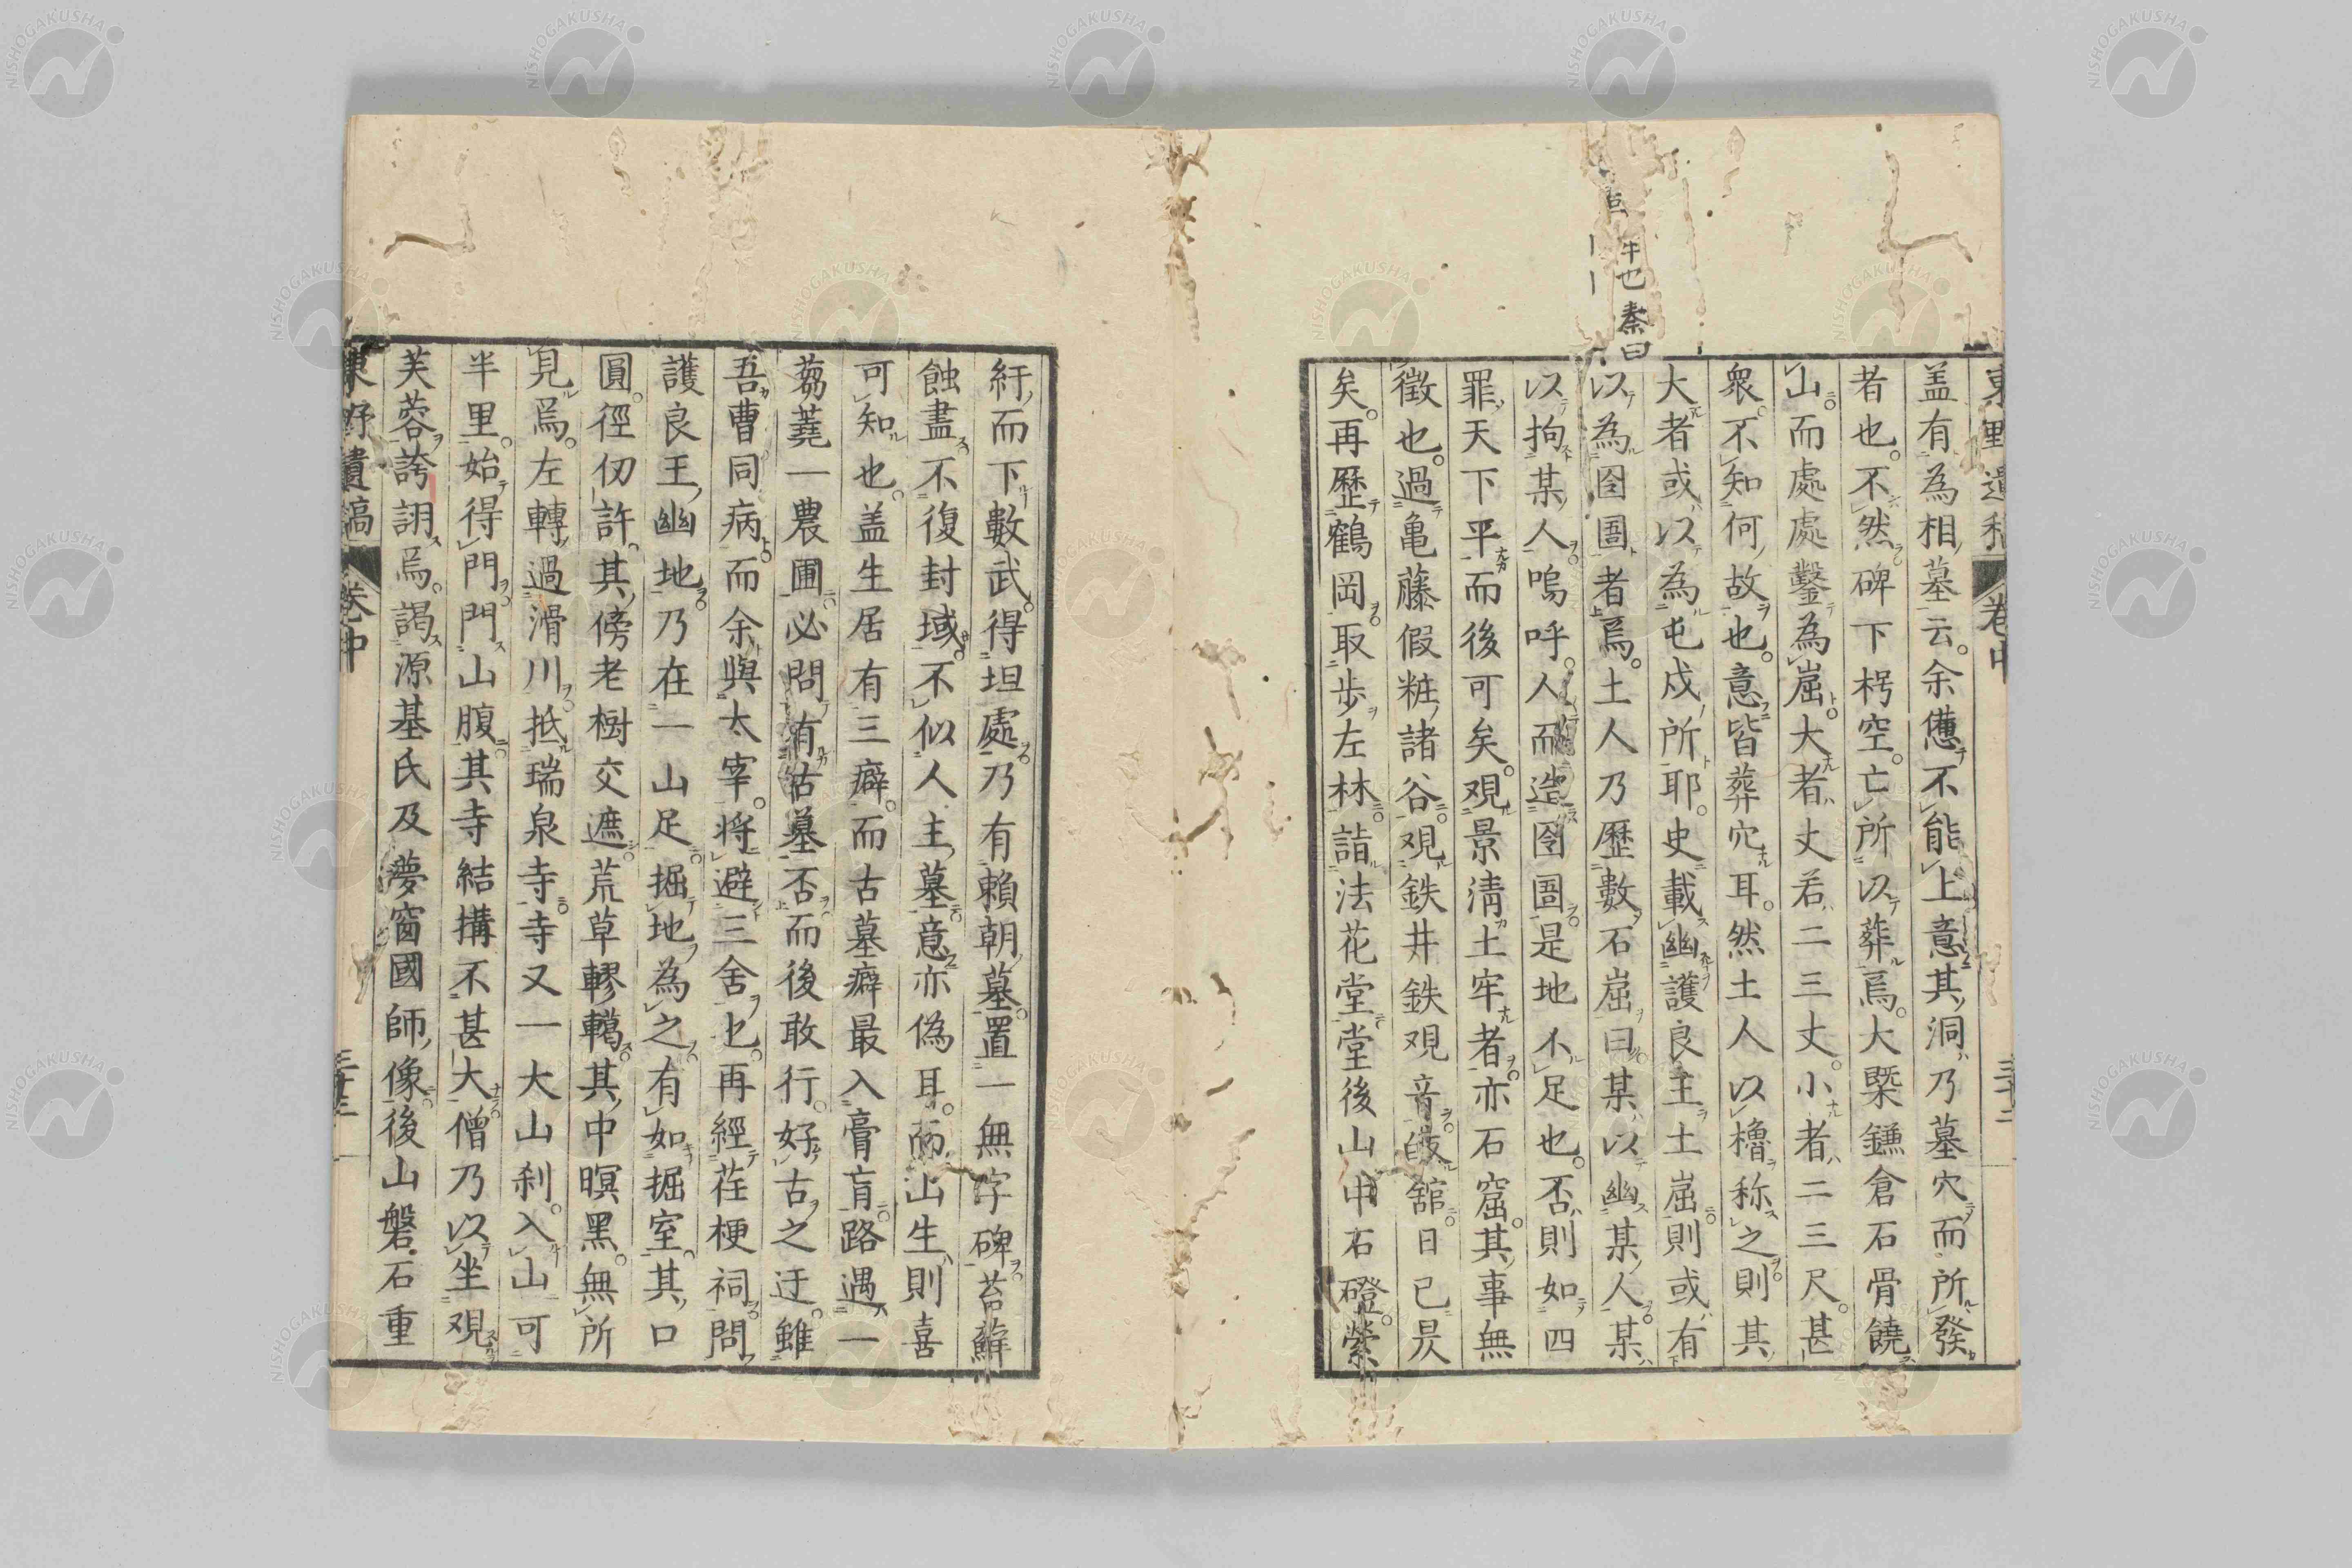 東野遺稿 卷中 三十二
盖有為相墓云余憊不能上意其洞乃墓穴而所發
者也不然碑下枵空亡所以葬焉大槩鎌倉石骨饒
山而處處鑿為崫大者丈若二三丈小者二三尺甚
衆不知何故也意皆葬穴耳然土人以櫓称之則其
大者或以為屯戍所耶史載幽護良王土崫則或有
以為囹圄者焉土人乃歴數石崫曰某以幽某人某
以拘某人嗚呼人而造囹圄是地不足也否則如四
罪天下平而後可矣観景清土牢者亦石窟其事無
徴也過亀藤假粧諸谷観鉄井鉄観音皈舘日已昃
矣再歴鶴岡取歩左林詣法花堂堂後山中石磴縈
牛也秦曰
紆而下數武得坦處乃有頼朝墓置一無字碑苔蘚
蝕盡不復封域不似人主墓意亦偽耳而山生則喜
可知也盖生居有三癖而古墓癖最入膏肓路遇一
芻蕘一農圃必問有古墓否而後敢行好古之迂雖
吾曹同病而余與太宰将避三舍也再經荏梗祠問
護良王幽地乃在一山足掘地為之有如掘室其口
圓徑仞許其傍老樹交遮荒草轇轕其中暝黒無所
見焉左轉過滑川抵瑞泉寺寺又一大山刹入山可
半里始得門門山腹其寺結構不甚大僧乃以坐観
芙蓉誇詡焉謁源基氏及夢窗國師像後山磐石重
東野遺稿 卷中 三十三